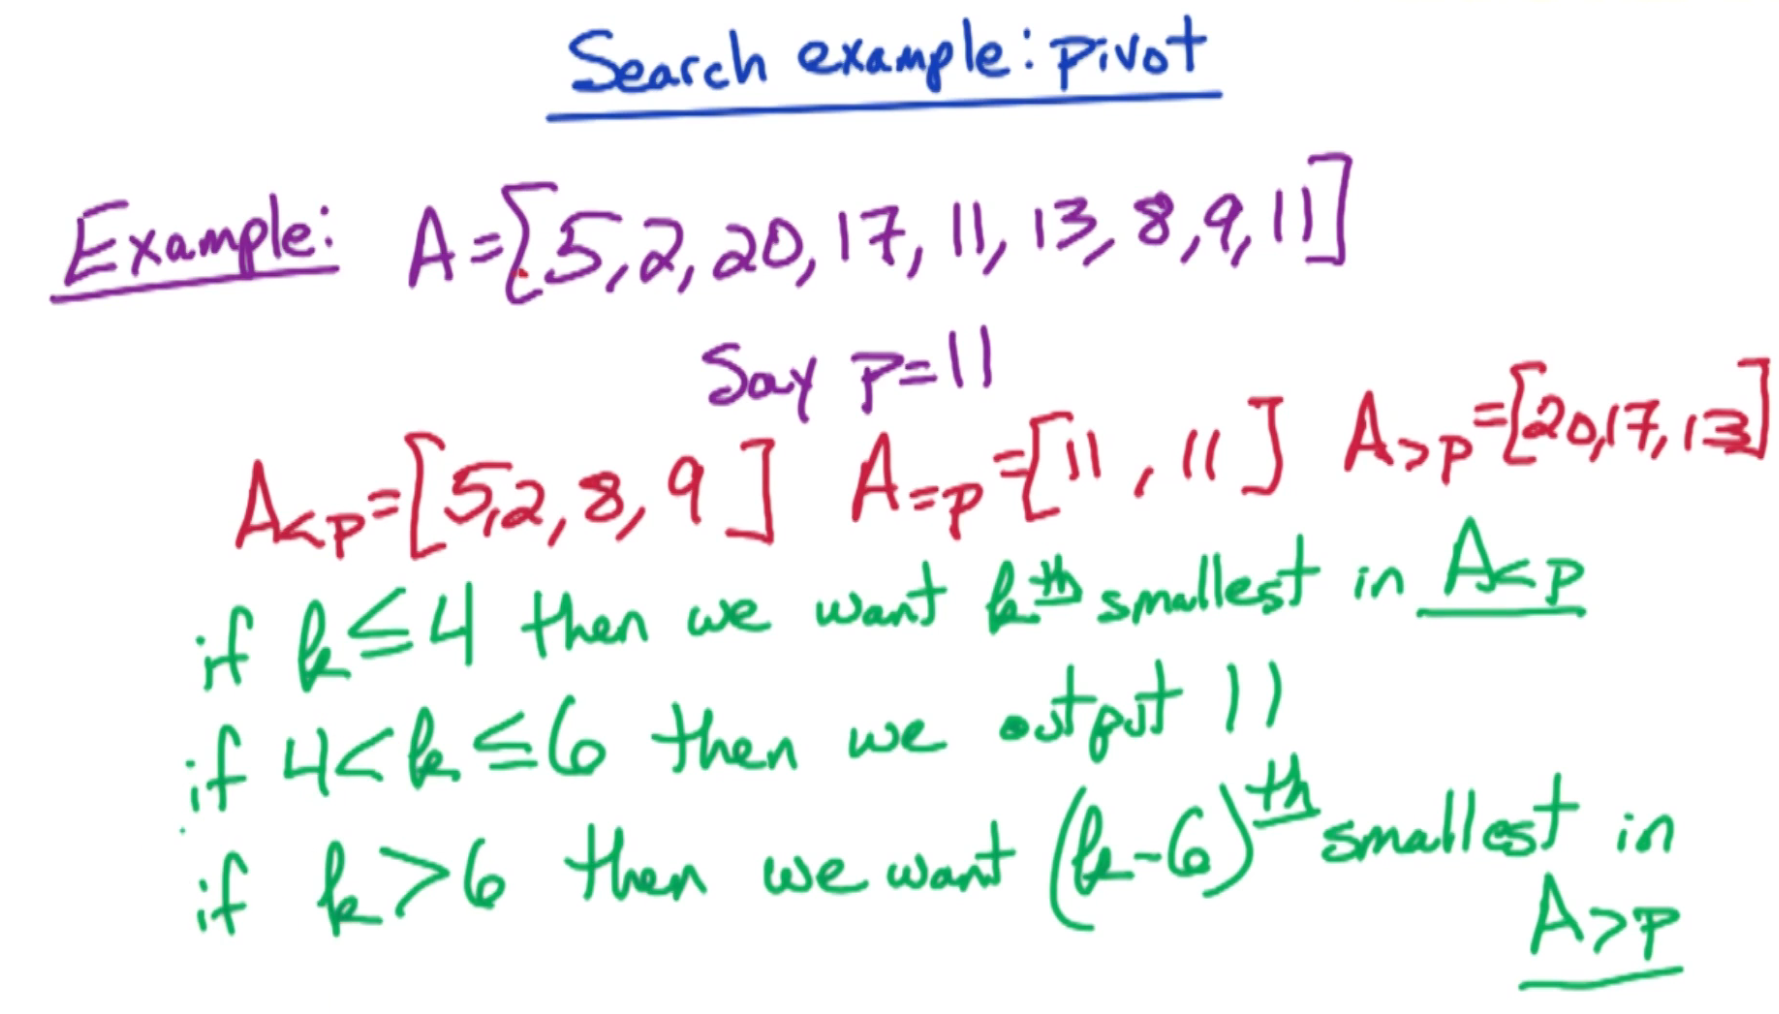 Search example: pivot
Example: A=[5, 2, 20, 17, 11, 13, 8, 9, 11]
Say p=11
A<p=[5, 2, 8, 9] A=p=[11, 11] A>p=[20, 17, 13]
if k≤4 then we want kth smallest in A<p
if 4<k≤6 then we output 11
if k>6 then we want (k-6)th smallest in
A>p